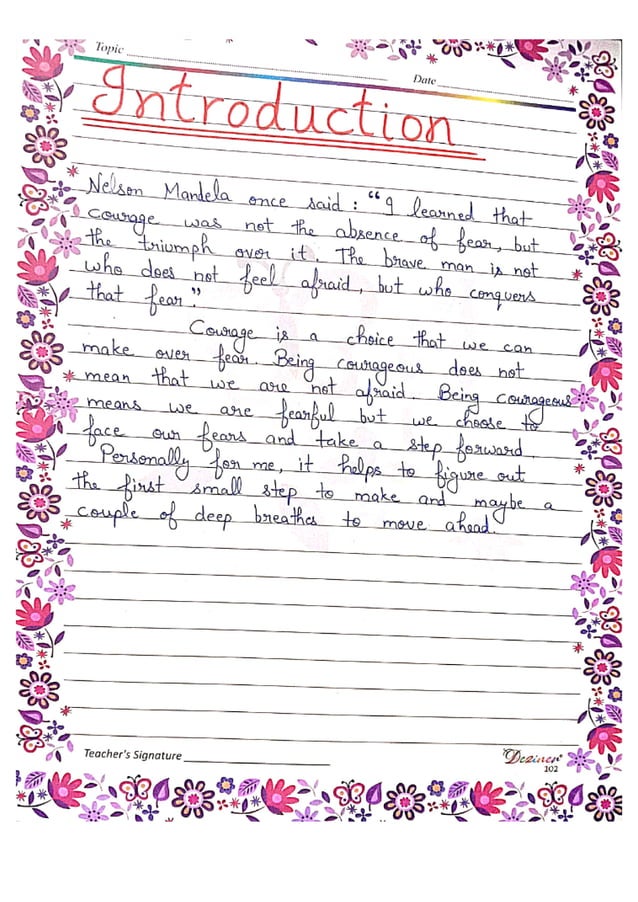 Topic
Date
Introduction
Nelson Mandela once said : "I learned that
courage was not the absence of fear, but
the triumph over it. The brave man is not
who does not feel afraid, but who conquers
that fear."
Courage is a choice that we can
make over fear. Being courageous does not
mean that we are not afraid. Being courageous
means we are fearful but we choose to
face our fears and take a step forward.
Personally for me, it helps to figure out
the first small step to make and maybe a
couple of deep breathes to move ahead.
Teacher's Signature
Deziner
102